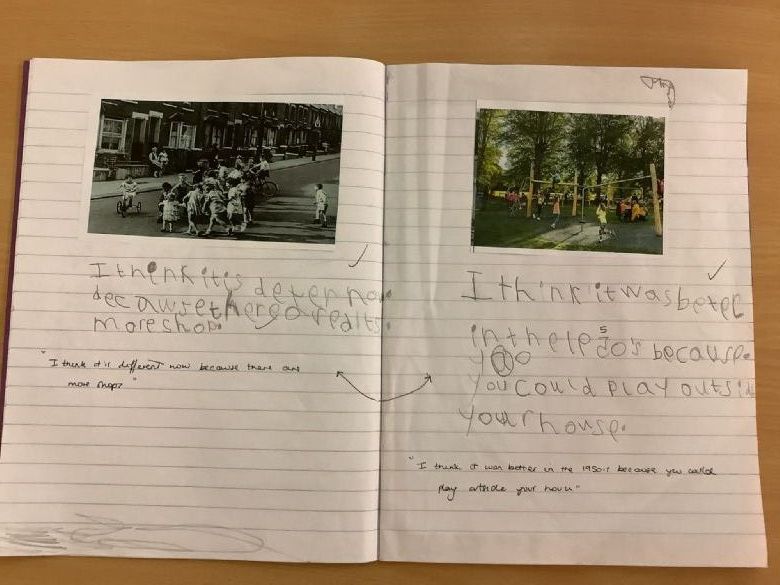 I thenk it is
becawse
more shop.
"I think it is different now because there are
more shops"
I think it was beter
in the 50's because
you could play outside
your house.
"I think it was better in the 1950's because you could
play outside your house"